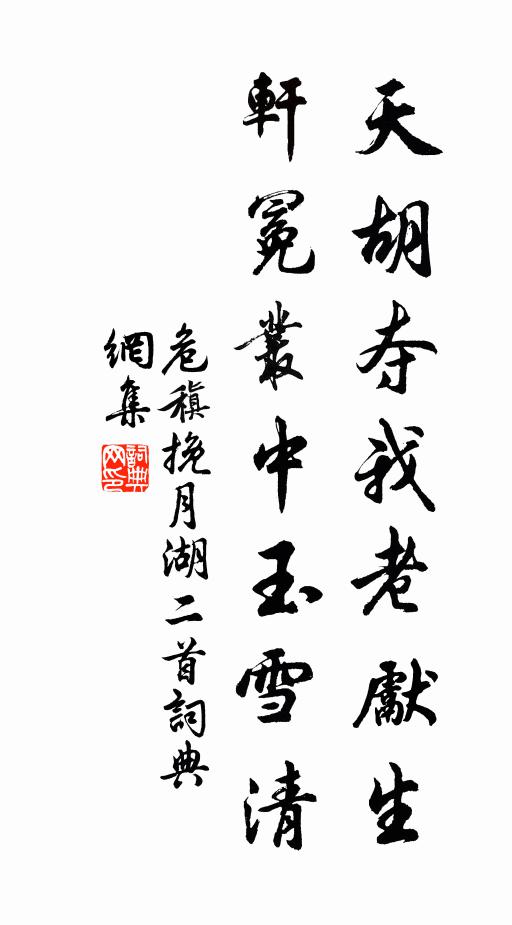 天胡夺我老獻生
軒冕叢中玉雪清
危稹挽月湖二首詞典
網集
詞典
网印